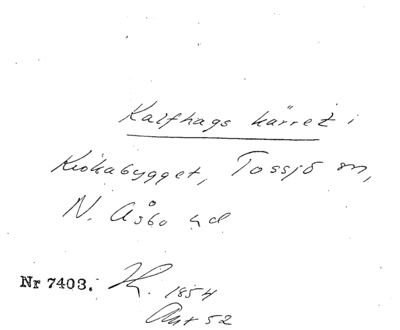 Kalfhags kärret i
Krokabygget, Tossjö sn,
N. Åsbo hd
Nr 7403. H. 1854
Ant 52